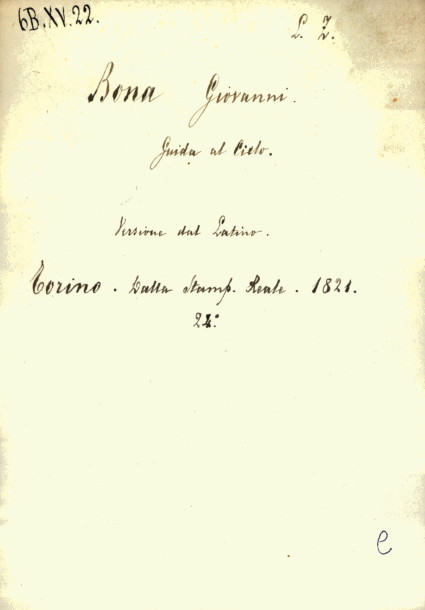 6B.XV.22.
L. Z.
Bona Giovanni.
Guida al Cielo.
Versione dal Latino.
Torino. Dalla Stamp. Reale. 1821.
24°
e